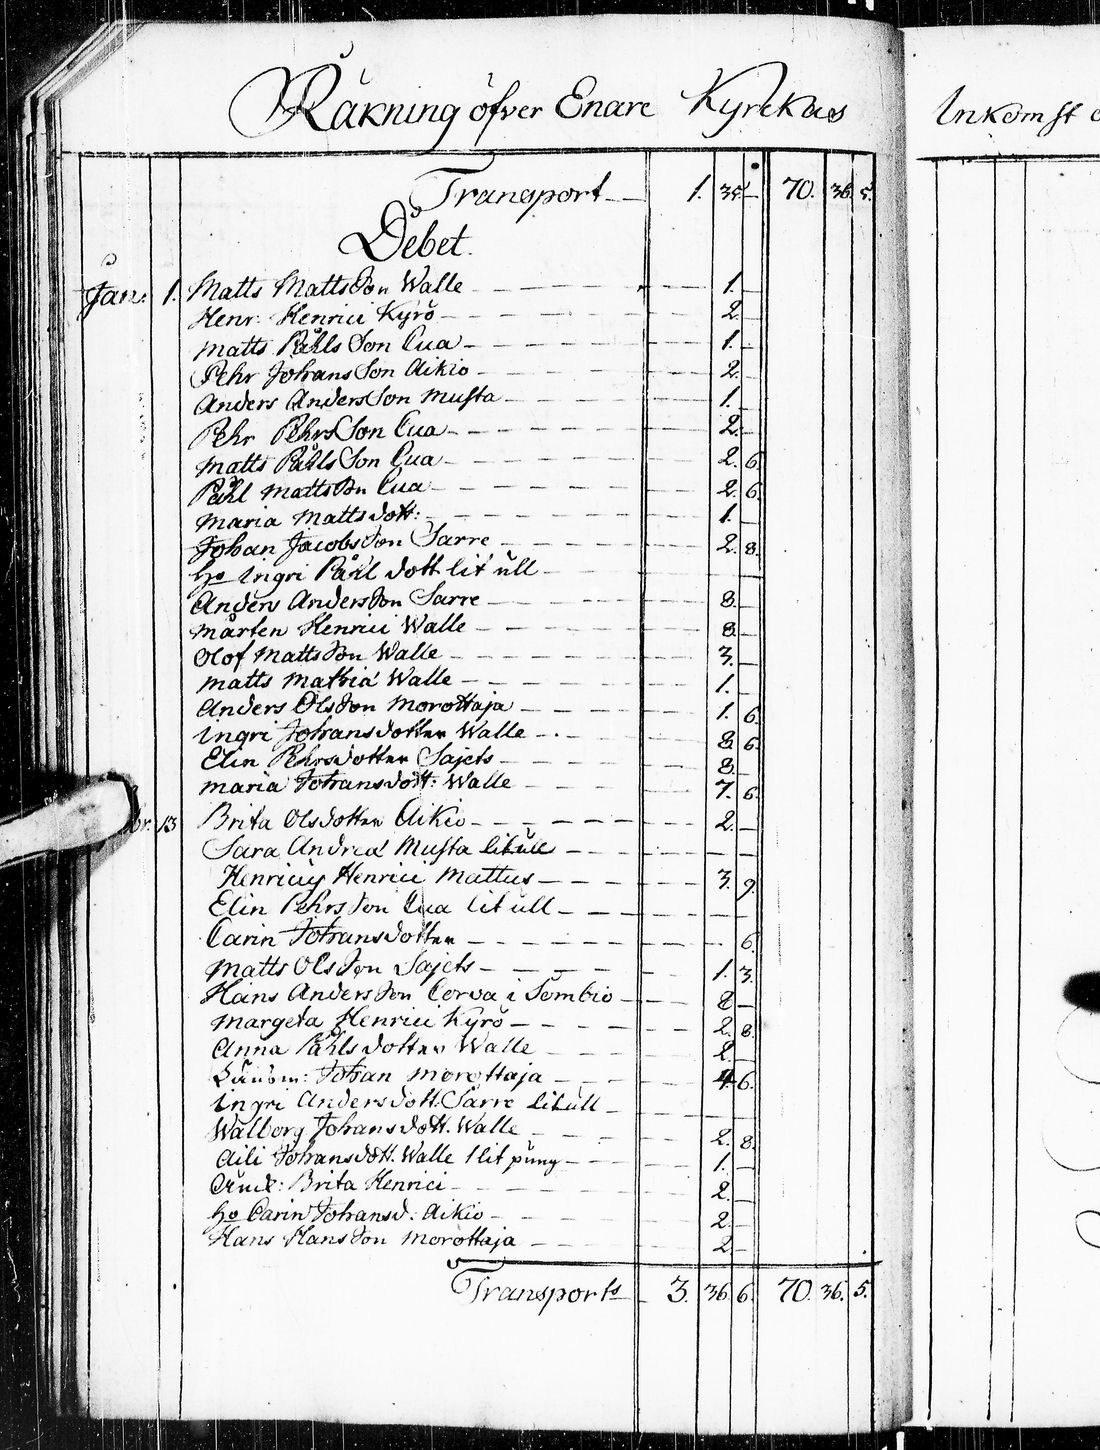 Räkning öfver Enare Kyrckas
Transport 1. 35. — 70. 36. 5.
Debet.
Jan: 1. Matts MattsSon Walle 1. —
Henr: Henrici Kyrö 2. —
Matts PåhlsSon Cua 1. —
Pehr JohansSon Aikio 2. —
Anders AndersSon Musta 1. —
Pehr PehrsSon Cua 2. —
Matts PåhlsSon Cua 2. 6.
Påhl MattsSon Cua 2. 6.
Maria Matts dott: 1. —
Johan JacobsSon Sarre 2. 8.
Ho Ingri Påhl dott lit ull —
Anders AndersSon Sarre 8. —
Mårten Henrici Walle 8. —
Olof MattsSon Walle 3. —
Matts Mathiæ Walle 1. —
Anders OlsSon Morottaja 1. 6.
Ingri Johansdotter Walle 8. 6.
Elin Pehrsdotter Sajets 8. —
Maria Johansdott: Walle 7. 6.
br. 13 Brita Olsdotter Aikio 2. —
Sara Andreæ Musta lit ull —
Henricus Henrici Mattus 3. 9.
Elin PehrsSon Cua lit ull —
Carin Johansdotter 6.
Matts OlsSon Sajets 1. 3.
Hans AndersSon Corva i Sombio 8 —
Margeta Henrici Kyrö 2. 8.
Anna Påhlsdotter Walle 2. —
Johan Morottaja 4. 6.
Ingri Andersdott. Sarre lit ull —
Walborg Johansdott. Walle 2. 8.
Aili Johansdott. Walle 1 lit pung 1. —
Brita Henrici 2. —
Ho Carin Johansd: Aikio 2. —
Hans HansSon Morottaja 2. —
Transports 3. 36. 6. 70. 36. 5.
Inkomst